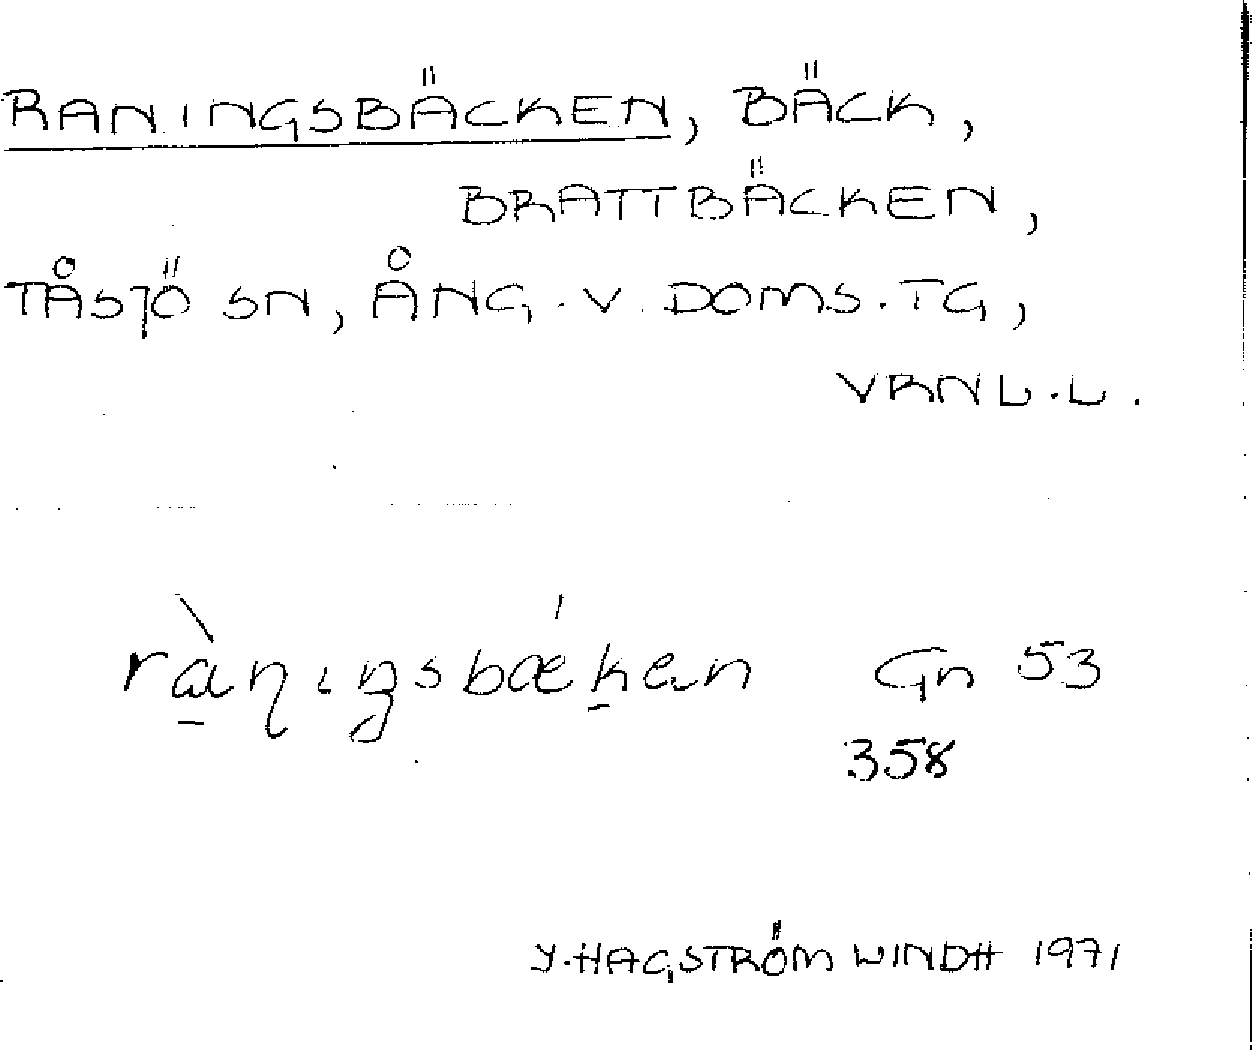 RANINGSBÄCKEN, BÄCK,
BRATTBÄCKEN,
TÅSJÖ SN, ÅNG. V. DOMS. TG,
VRNL.L.
rànıŋsbæken Gn 53
358
Y. HAGSTRÖM WINDH 1971